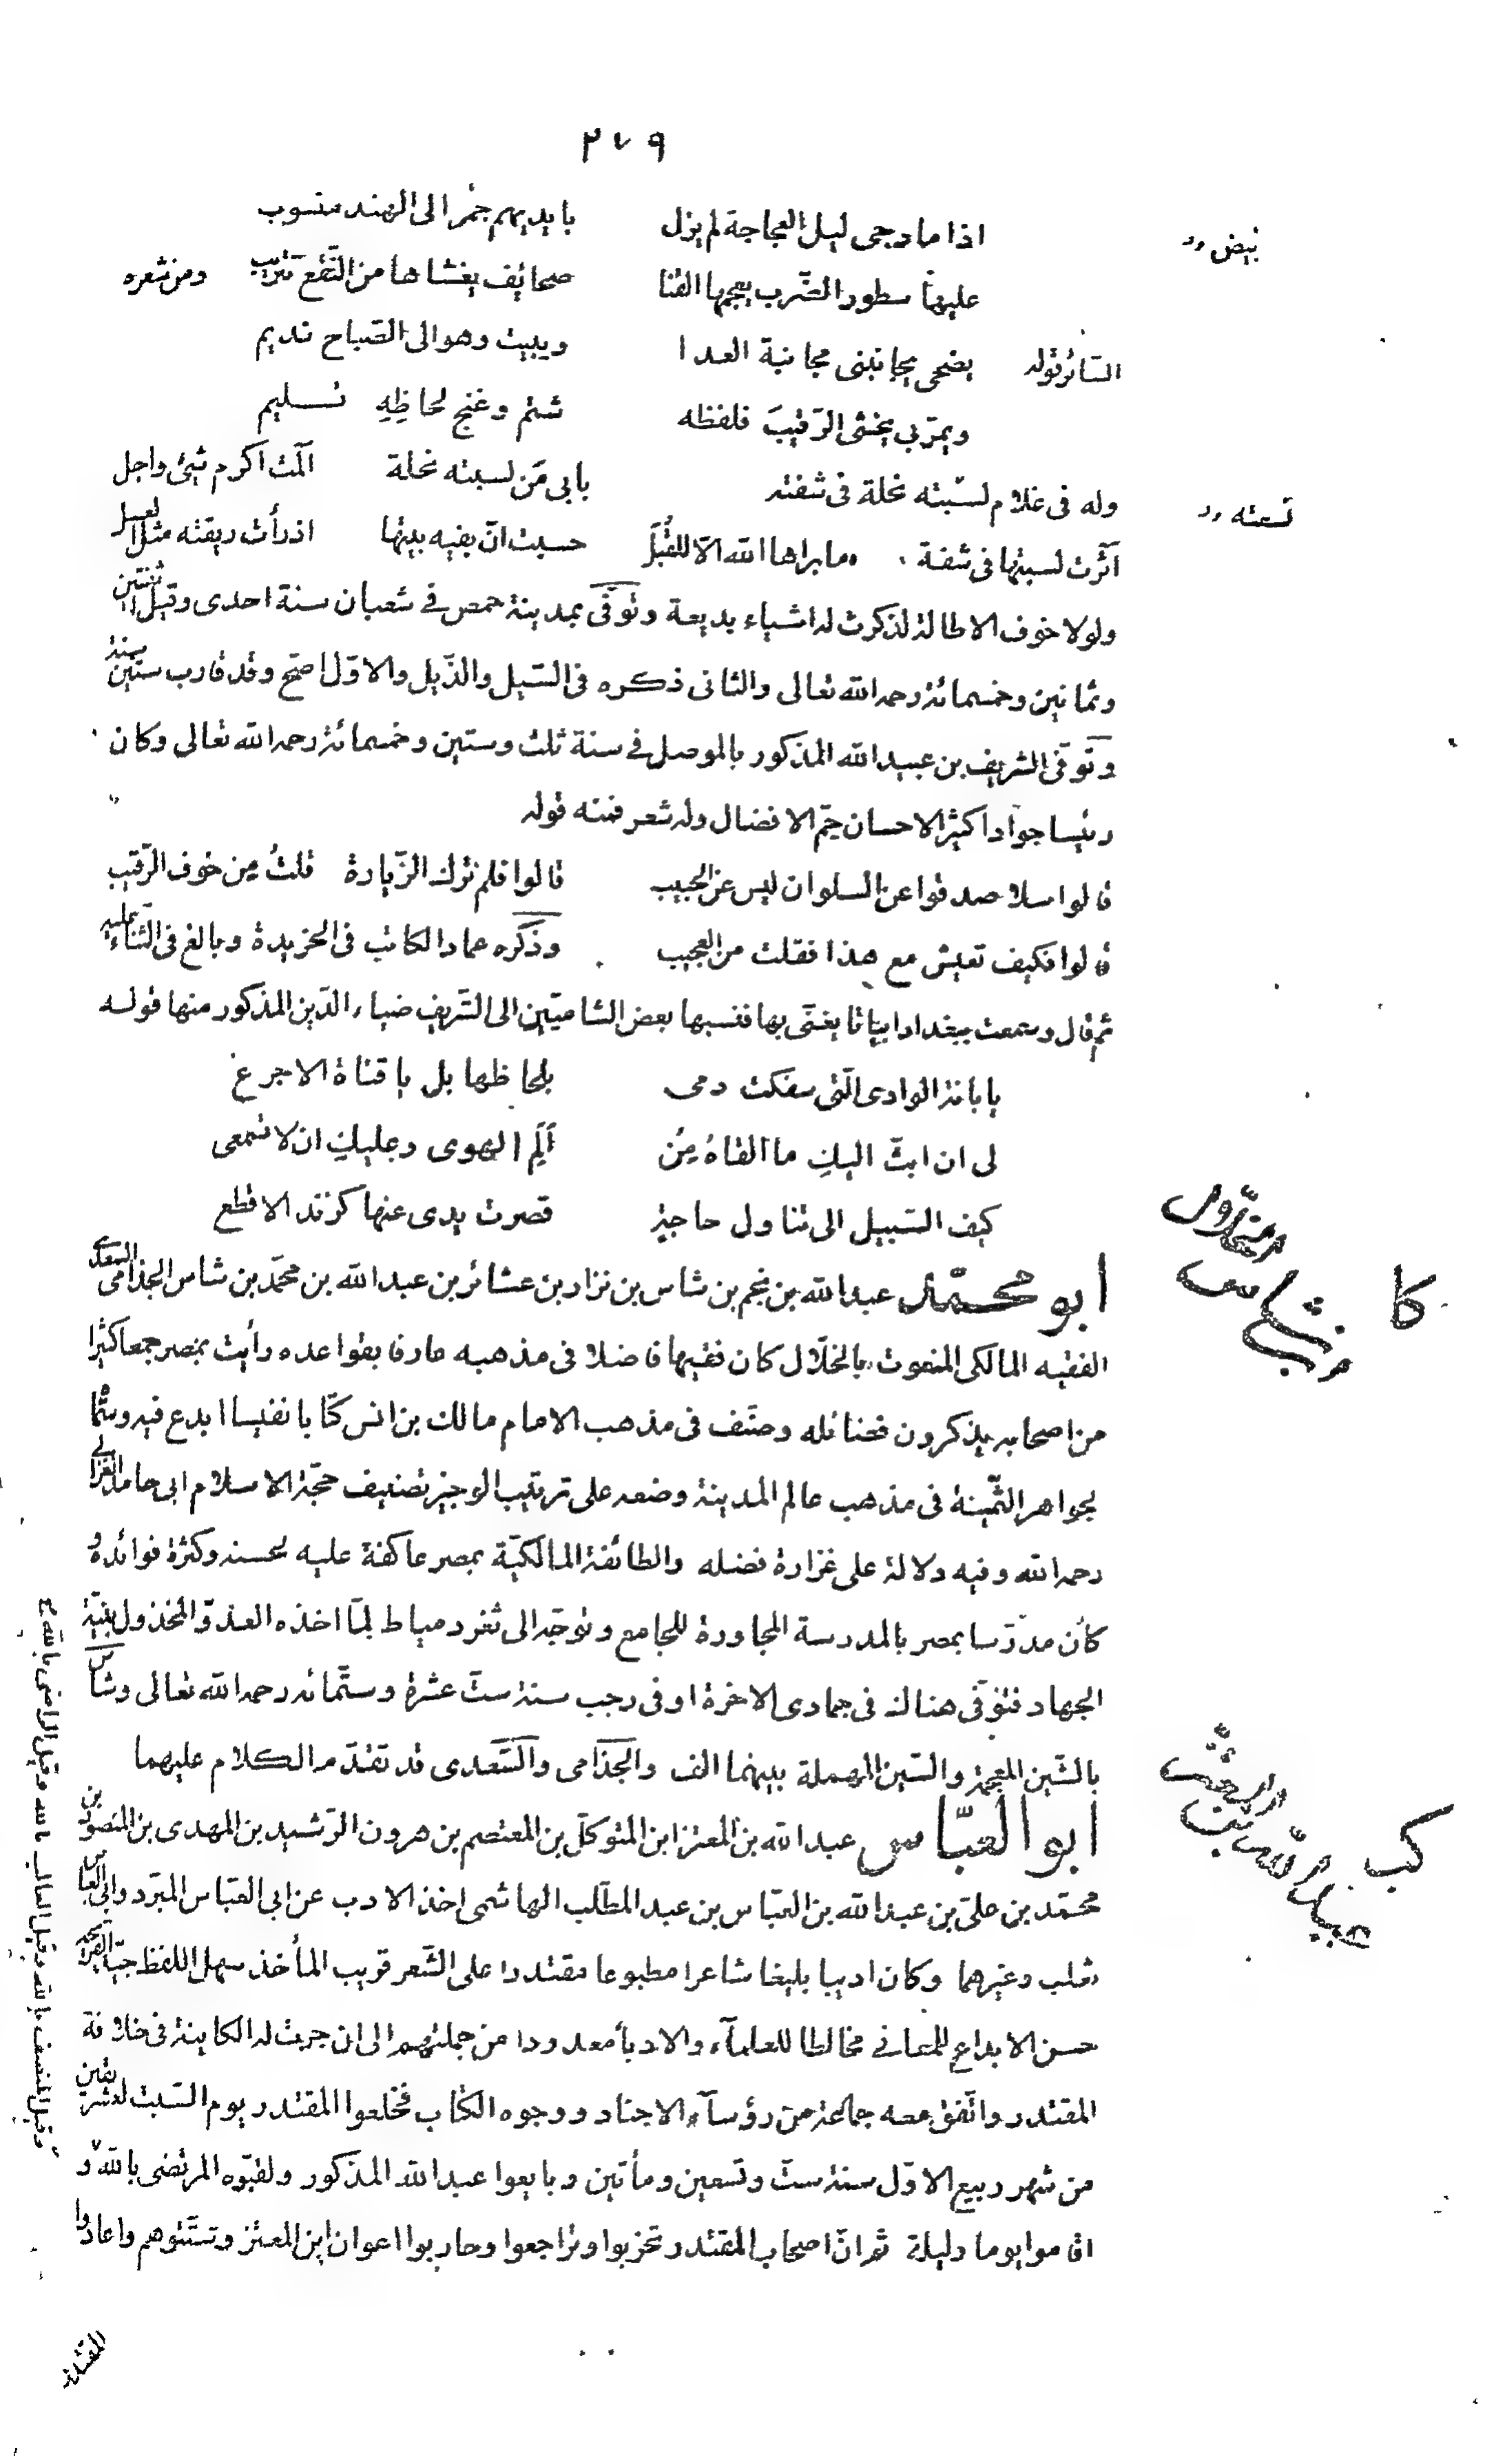 ٢٧٩
اذا ما دجى ليل العجاجة لم يزل بايديهم جمر الى الهند منسوب
نبيض
عليها سطور الضّرب يعجمها القنا صحائف يغشاها من النّقع تتريب ومن شعره
السّائر قوله يضحى يجانبنى مجانبة العدا ويبيت وهو الى الصّباح نديم
ويمرّ بي يخشى الرّقيبَ فلفظه شتم وغنج لحاظِهِ تسليم
وله فى غلام لسبته نحلة فى شفته بابى مَن لسبته نحلة آلمت اكرم شئ واجل
تسعته
اثّرت لسبتها فى شفة ما براها الله الّا للقُبَل حسبت انّ بفيه بيتها اذ رأت ريقته مثل العسل
ولولا خوف الاطالة لذكرت له اشياء بديعة وتوفّى بمدينة حمص فى شعبان سنة احدى وقيل اثنتين
وثمانين وخمسمائة رحمه الله تعالى والثانى ذكره فى السّيل والذّيل والاوّل اصحّ وقد قارب ستّين سنة
وتوفّى الشريف بن عبيد الله المذكور بالموصل فى سنة ثلث وستين وخمسمائة رحمه الله تعالى وكان
رئيسا جوادا كثير الاحسان جمّ الافضال وله شعر فمنه قوله
قالوا سلا صدقوا عن السلوان ليس عن الحبيب قالوا فلم ترك الزّيارة قلتُ مِن خوف الرّقيب
قالوا فكيف تعيش مع هذا فقلت من العجيب وذكره عماد الكاتب فى الخريدة وبالغ فى الثناء عليه
ثم قال وسمعت ببغداد ابياتا يغنّى بها فنسبها بعض الشاميّين الى الشّريف ضياء الدّين المذكور منها قوله
يا بانة الوادى الّتى سفكت دمى بلحاظها بل يا قناة الاجرع
لى ان ابثّ اليكِ ما القاهُ مِن اَلَمِ الهوى وعليكِ ان لا تسمعى
كيف السّبيل الى تناول حاجة قصرت يدى عنها كزند الاقطع
ابو محمّد عبد الله بن نجم بن شاس بن نزار بن عشائر بن عبد الله بن محمّد بن شاس الجذامى السّعدى
كا بن شاس الخلّال
الفقيه المالكى المنعوت بالخلّال كان فقيها فاضلا فى مذهبه عارفا بقواعده رأيت بمصر جمعا كثيرا
من اصحابه يذكرون فضائله وصنّف فى مذهب الامام مالك بن انس كتابا نفيسا ابدع فيه وسمّا
الجواهر الثّمينة فى مذهب عالم المدينة وضعه على ترتيب الوجيز تصنيف حجّة الاسلام ابى حامد الغزالى
رحمه الله وفيه دلالة على غزارة فضله والطائفة المالكيّة بمصر عاكفة عليه لحسنه وكثرة فوائده و
كان مدرّسا بمصر بالمدرسة المجاورة للجامع وتوجّه الى ثغر دمياط لمّا اخذه العدوّ المخذول بنيّة
الجهاد فتوفّى هناك فى جمادى الاخرة او فى رجب سنة ستّ عشرة وستّمائة رحمه الله تعالى وشاس
بالشّين المعجمة والسّين المهملة بينهما الف والجذامى والسّعدى قد تقدّم الكلام عليهما
ابو العبّاس عبد الله بن المعتز ابن المتوكّل بن المعتصم بن هرون الرّشيد بن المهدى بن المنصور بن
كب عبد الله بن المعتزّ
محمّد بن علىّ بن عبد الله بن العبّاس بن عبد المطّلب الهاشمى اخذ الادب عن ابى العبّاس المبرّد وابى العباس
ثعلب وغيرهما وكان اديبا بليغا شاعرا مطبوعا مقتدرا على الشّعر قريب المأخذ سهل اللفظ جيّد القريحة
حسن الابداع للمعانى مخالطا للعلمآء والادبآ معدودا من جملتهم الى ان جرت له الكاينة فى خلافة
المقتدر واتّفق معه جماعة من رؤسآء الاجناد ووجوه الكتّاب فخلعوا المقتدر يوم السّبت لعشر بقين
من شهر ربيع الاوّل سنة ستّ وتسعين ومأتين وبايعوا عبد الله المذكور ولقّبوه المرتضى بالله و
اقاموا يوما وليلة ثم انّ اصحاب المقتدر تحزبوا وتراجعوا وحاربوا اعوان ابن المعتز وشتّتوهم واعادوا
وقيل المنصف بالله وقيل الغالب بالله وقيل الراضى بالله
المقتدر